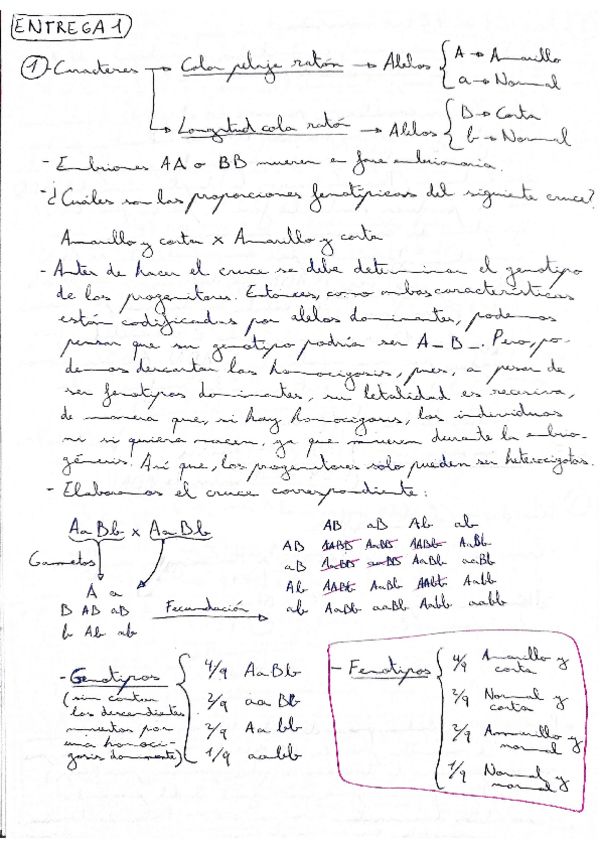 ENTREGA 1
① - Caracteres → Color pelaje ratón → Alelos { A → Amarillo
a → Normal
→ Longitud cola ratón → Alelos { B → Corta
b → Normal
- Embriones AA o BB mueren en fase embrionaria.
- ¿Cuáles son las proporciones fenotípicas del siguiente cruce?
Amarillo y corta x Amarillo y corta
- Antes de hacer el cruce se debe determinar el genotipo
de los progenitores. Entonces, como ambas características
están codificadas por alelos dominantes, podemos
pensar que su genotipo podría ser A_ B_. Pero, po-
demos descartar las homocigosis, pues, a pesar de
ser fenotipos dominantes, su letalidad es recesiva,
de manera que, si hay homocigosis, los individuos
ni si quiera nacen, ya que mueren durante la embrio-
génesis. Así que, los progenitores solo pueden ser heterocigotos.
- Elaboramos el cruce correspondiente:
AaBb x AaBb
Gametos
A a
B AB aB
b Ab ab
Fecundación →
AB aB Ab ab
AB AABB AaBB AABb AaBb
aB AaBB aaBB AaBb aaBb
Ab AABb AaBb AAbb Aabb
ab AaBb aaBb Aabb aabb
- Genotipos
(sin contar
los descendientes
muertos por
una homoci-
gosis dominante)
4/9 AaBb
2/9 aaBb
2/9 Aabb
1/9 aabb
- Fenotipos
4/9 Amarillo y
corta
2/9 Normal y
corta
2/9 Ammarillo y
normal
1/9 Normal y
normal